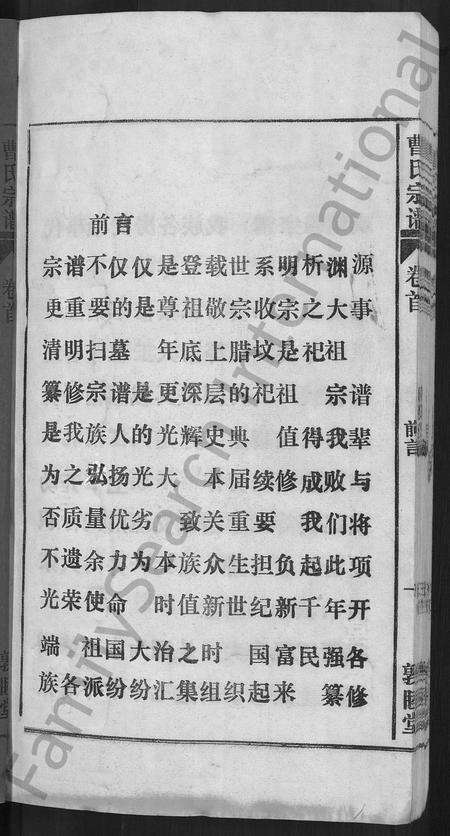 前言
宗谱不仅仅是登载世系明析渊源
更重要的是尊祖敬宗收宗之大事
清明扫墓 年底上腊坟是祀祖
纂修宗谱是更深层的祀祖 宗谱
是我族人的光辉史典 值得我辈
为之弘扬光大 本届续修成败与
否质量优劣 致关重要 我们将
不遗余力为本族众生担负起此项
光荣使命 时值新世纪新千年开
端 祖国大治之时 国富民强各
族各派纷纷汇集组织起来 纂修
曹氏宗谱
卷首
前言
一
敦睦堂
曹氏宗谱
卷首
FamilySearch International